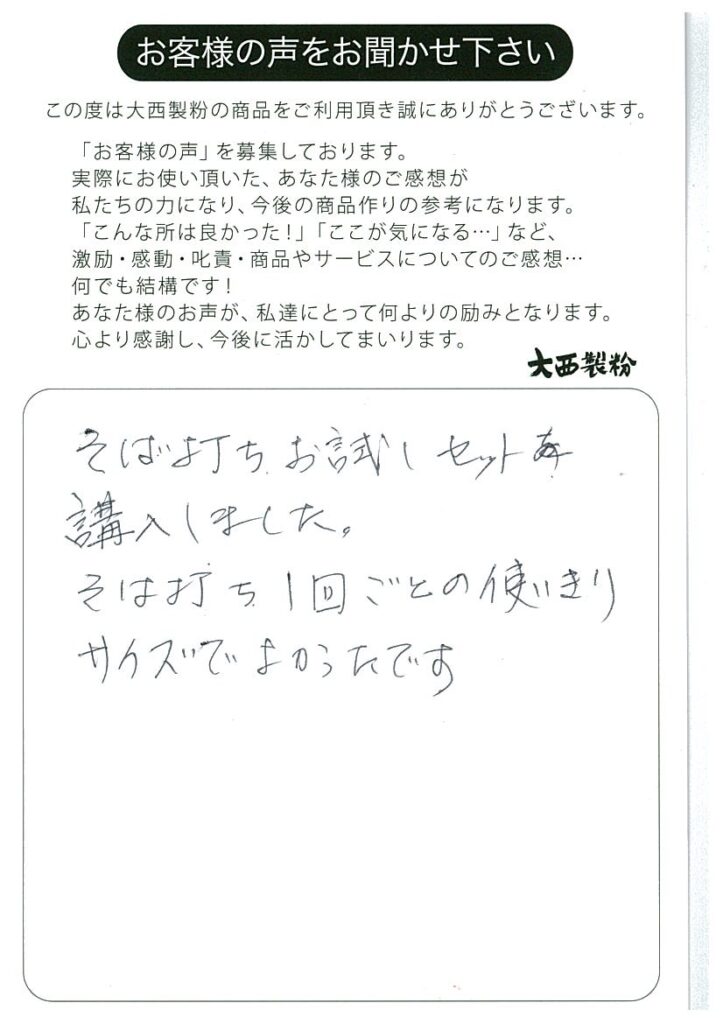 お客様の声をお聞かせ下さい
この度は大西製粉の商品をご利用頂き誠にありがとうございます。
「お客様の声」を募集しております。
実際にお使い頂いた、あなた様のご感想が
私たちの力になり、今後の商品作りの参考になります。
「こんな所は良かった！」「ここが気になる…」など、
激励・感動・叱責・商品やサービスについてのご感想…
何でも結構です！
あなた様のお声が、私達にとって何よりの励みとなります。
心より感謝し、今後に活かしてまいります。
大西製粉
そば打ち お試し セットを
講入しました。
そは打ち 1回ごとの使いきり
サイズで よかったです